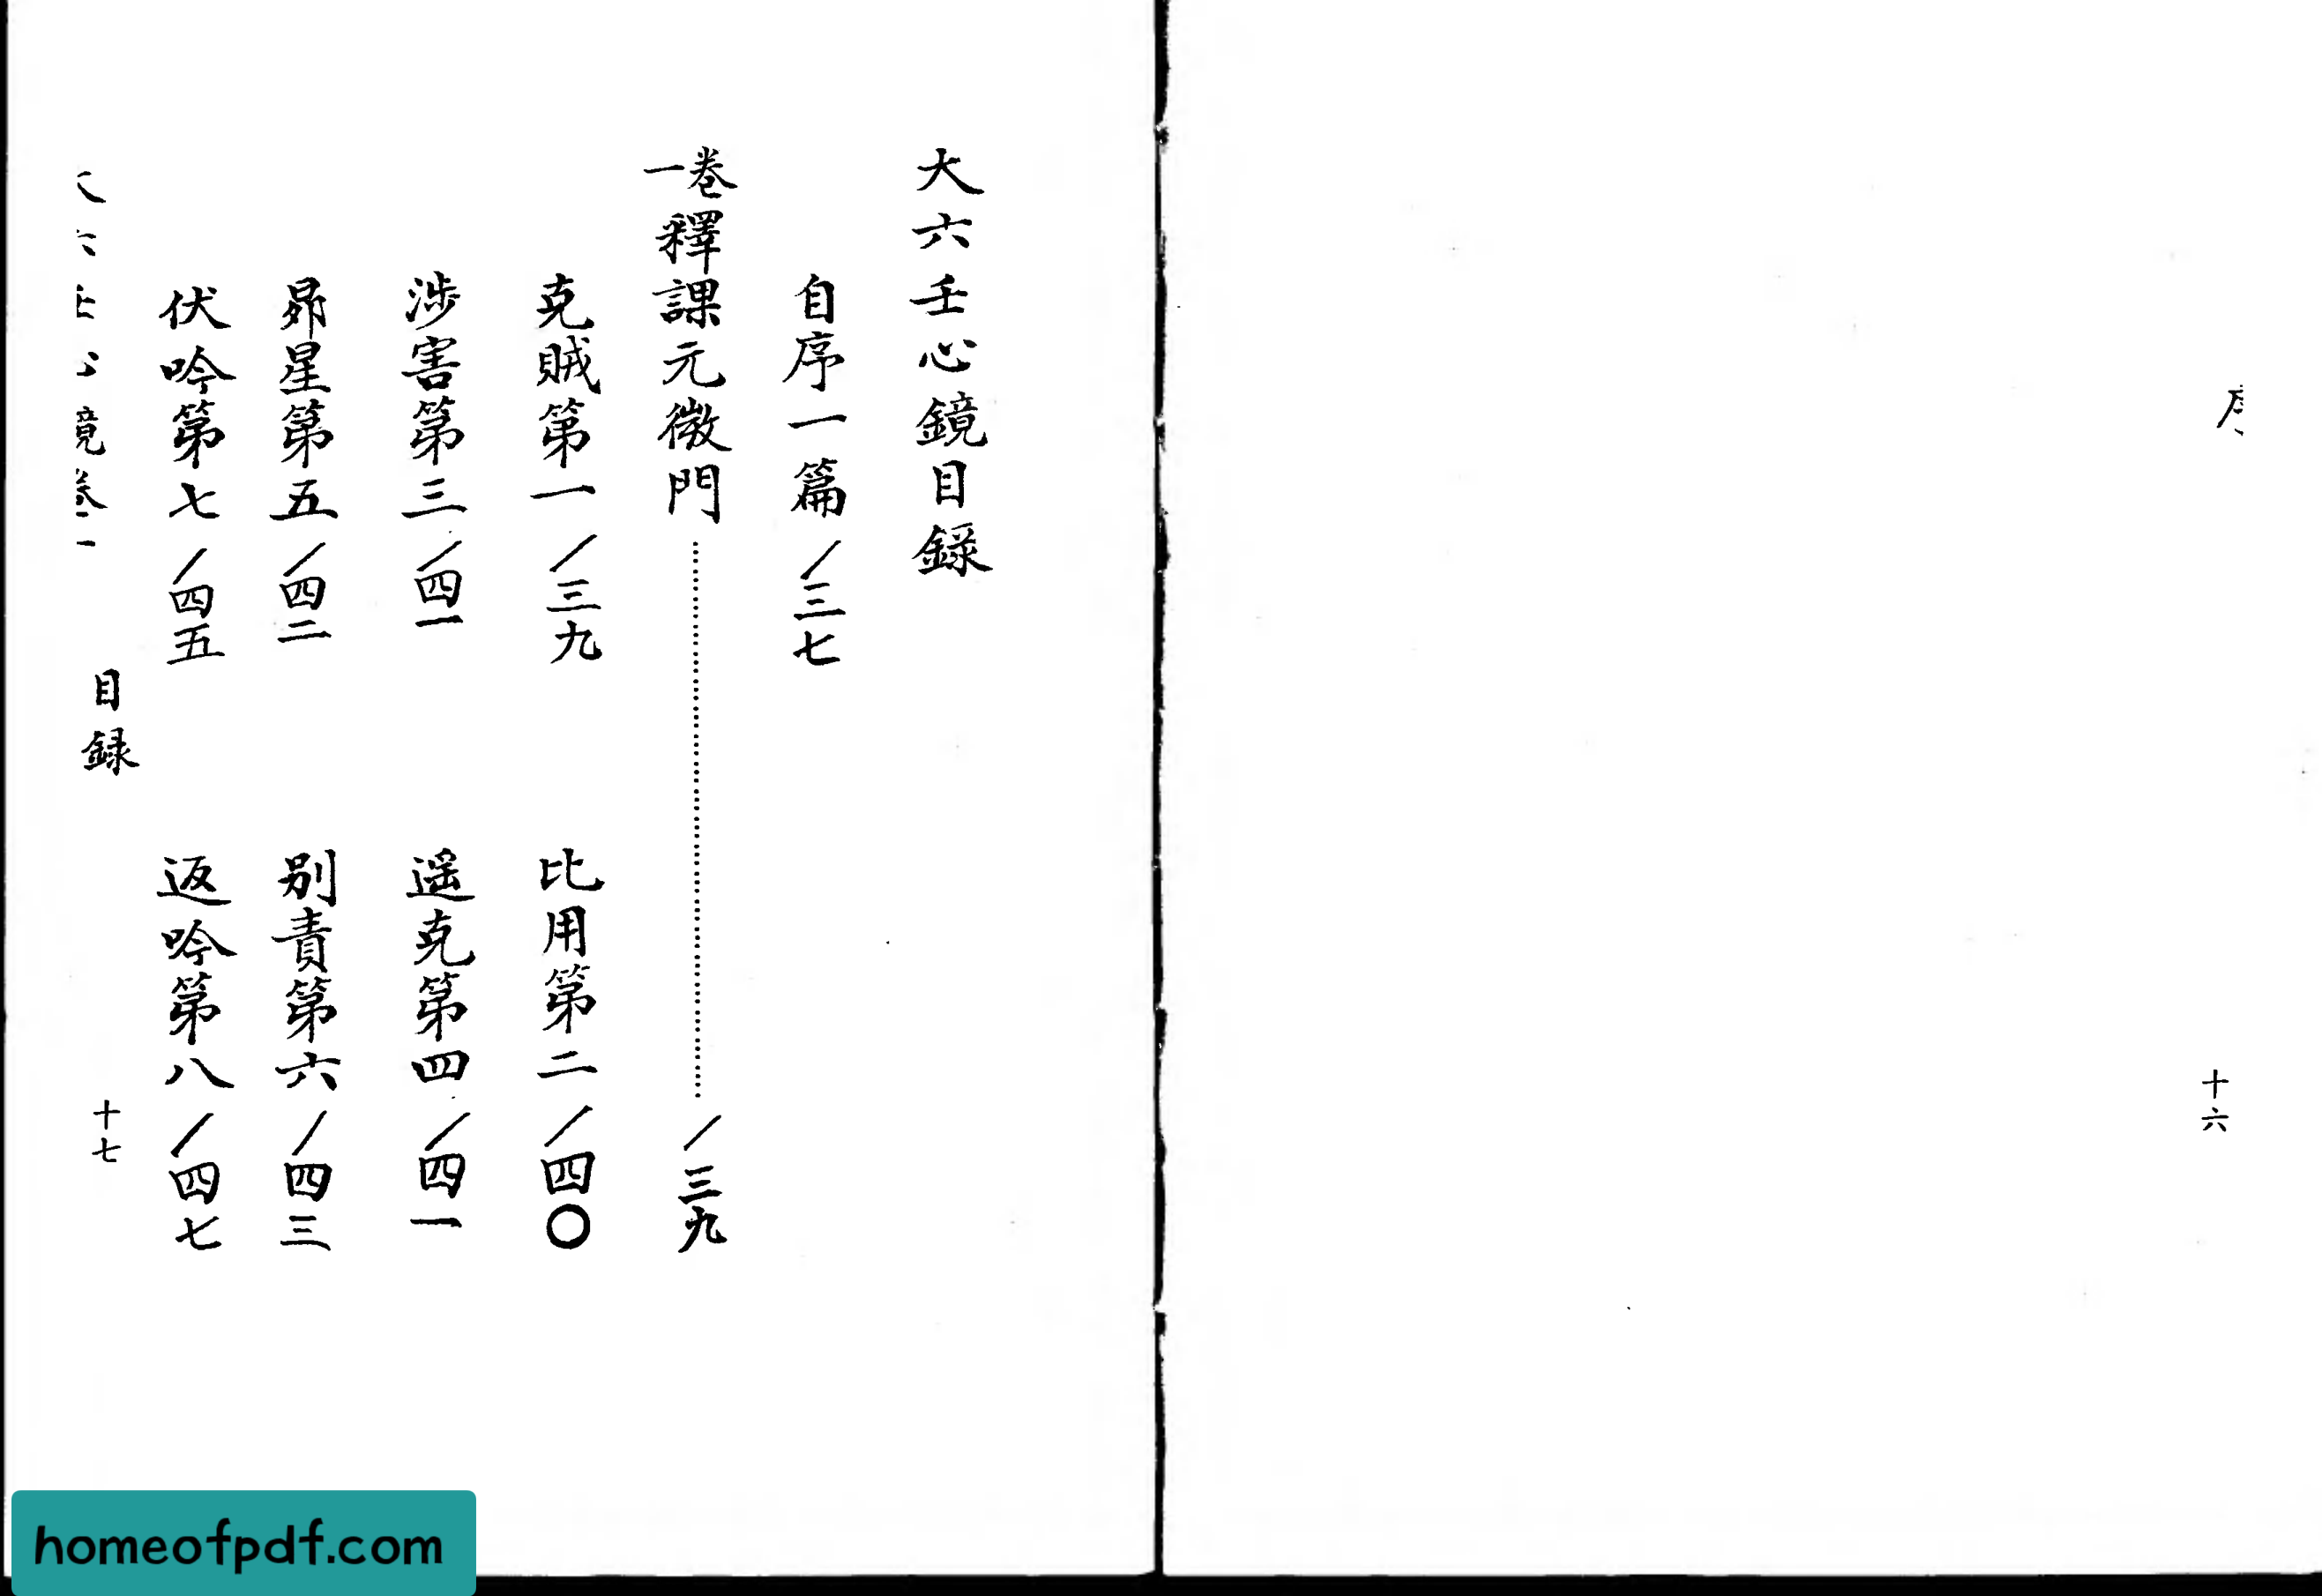 序
十六
大六壬心鏡目錄
自序一篇／三七
卷一 釋課元微門……／三九
克賊第一／三九 比用第二／四〇
涉害第三／四一 遥克第四／四一
昴星第五／四二 别責第六／四三
伏吟第七／四五 返吟第八／四七
大六壬心鏡卷一 目録 十七
homeofpdf.com